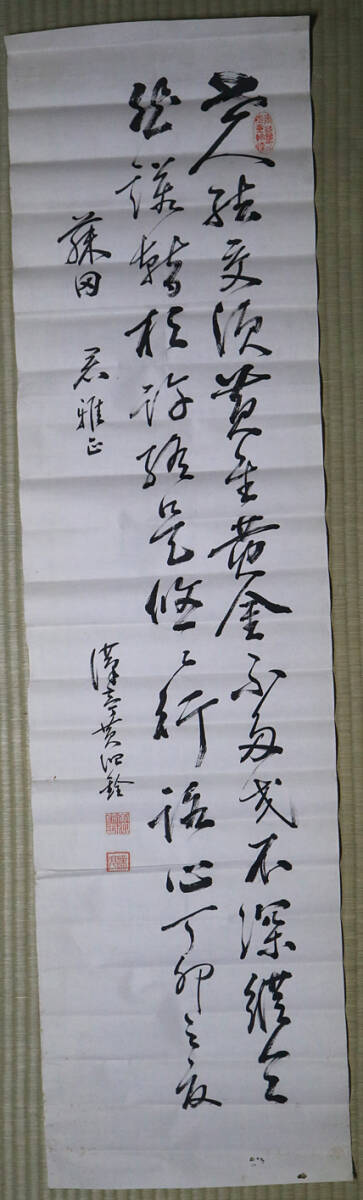 世人結交須黄金黄金不多交不深縱令
然諾暫相許終是悠々行路心丁卯之夏
藤田君雅正
漢亭黄洄銓